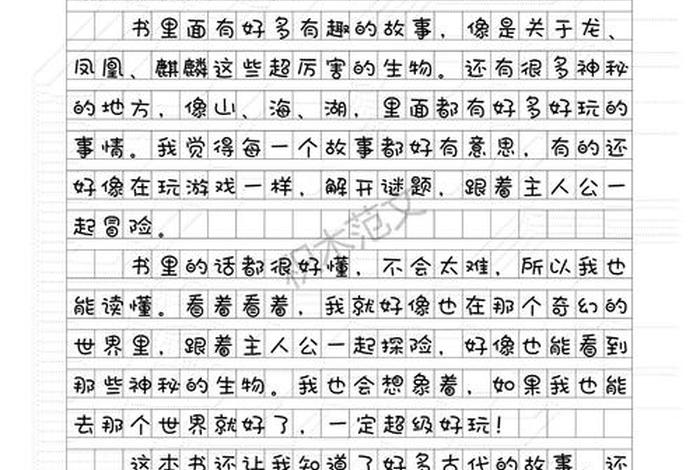 书里面有好多有趣的故事，像是关于龙、
凤凰、麒麟这些超厉害的生物。还有很多神秘
的地方，像山、海、湖，里面都有好多好玩的
事情。我觉得每一个故事都好有意思，有的还
好像在玩游戏一样，解开谜题，跟着主人公一
起冒险。
书里的话都很好懂，不会太难，所以我也
能读懂。看着看着，我就好像也在那个奇幻的
世界里，跟着主人公一起探险，好像也能看到
那些神秘的生物。我也会想象着，如果我也能
去那个世界就好了，一定超级好玩！
这本书还让我知道了好多古代的故事，还
积木范文